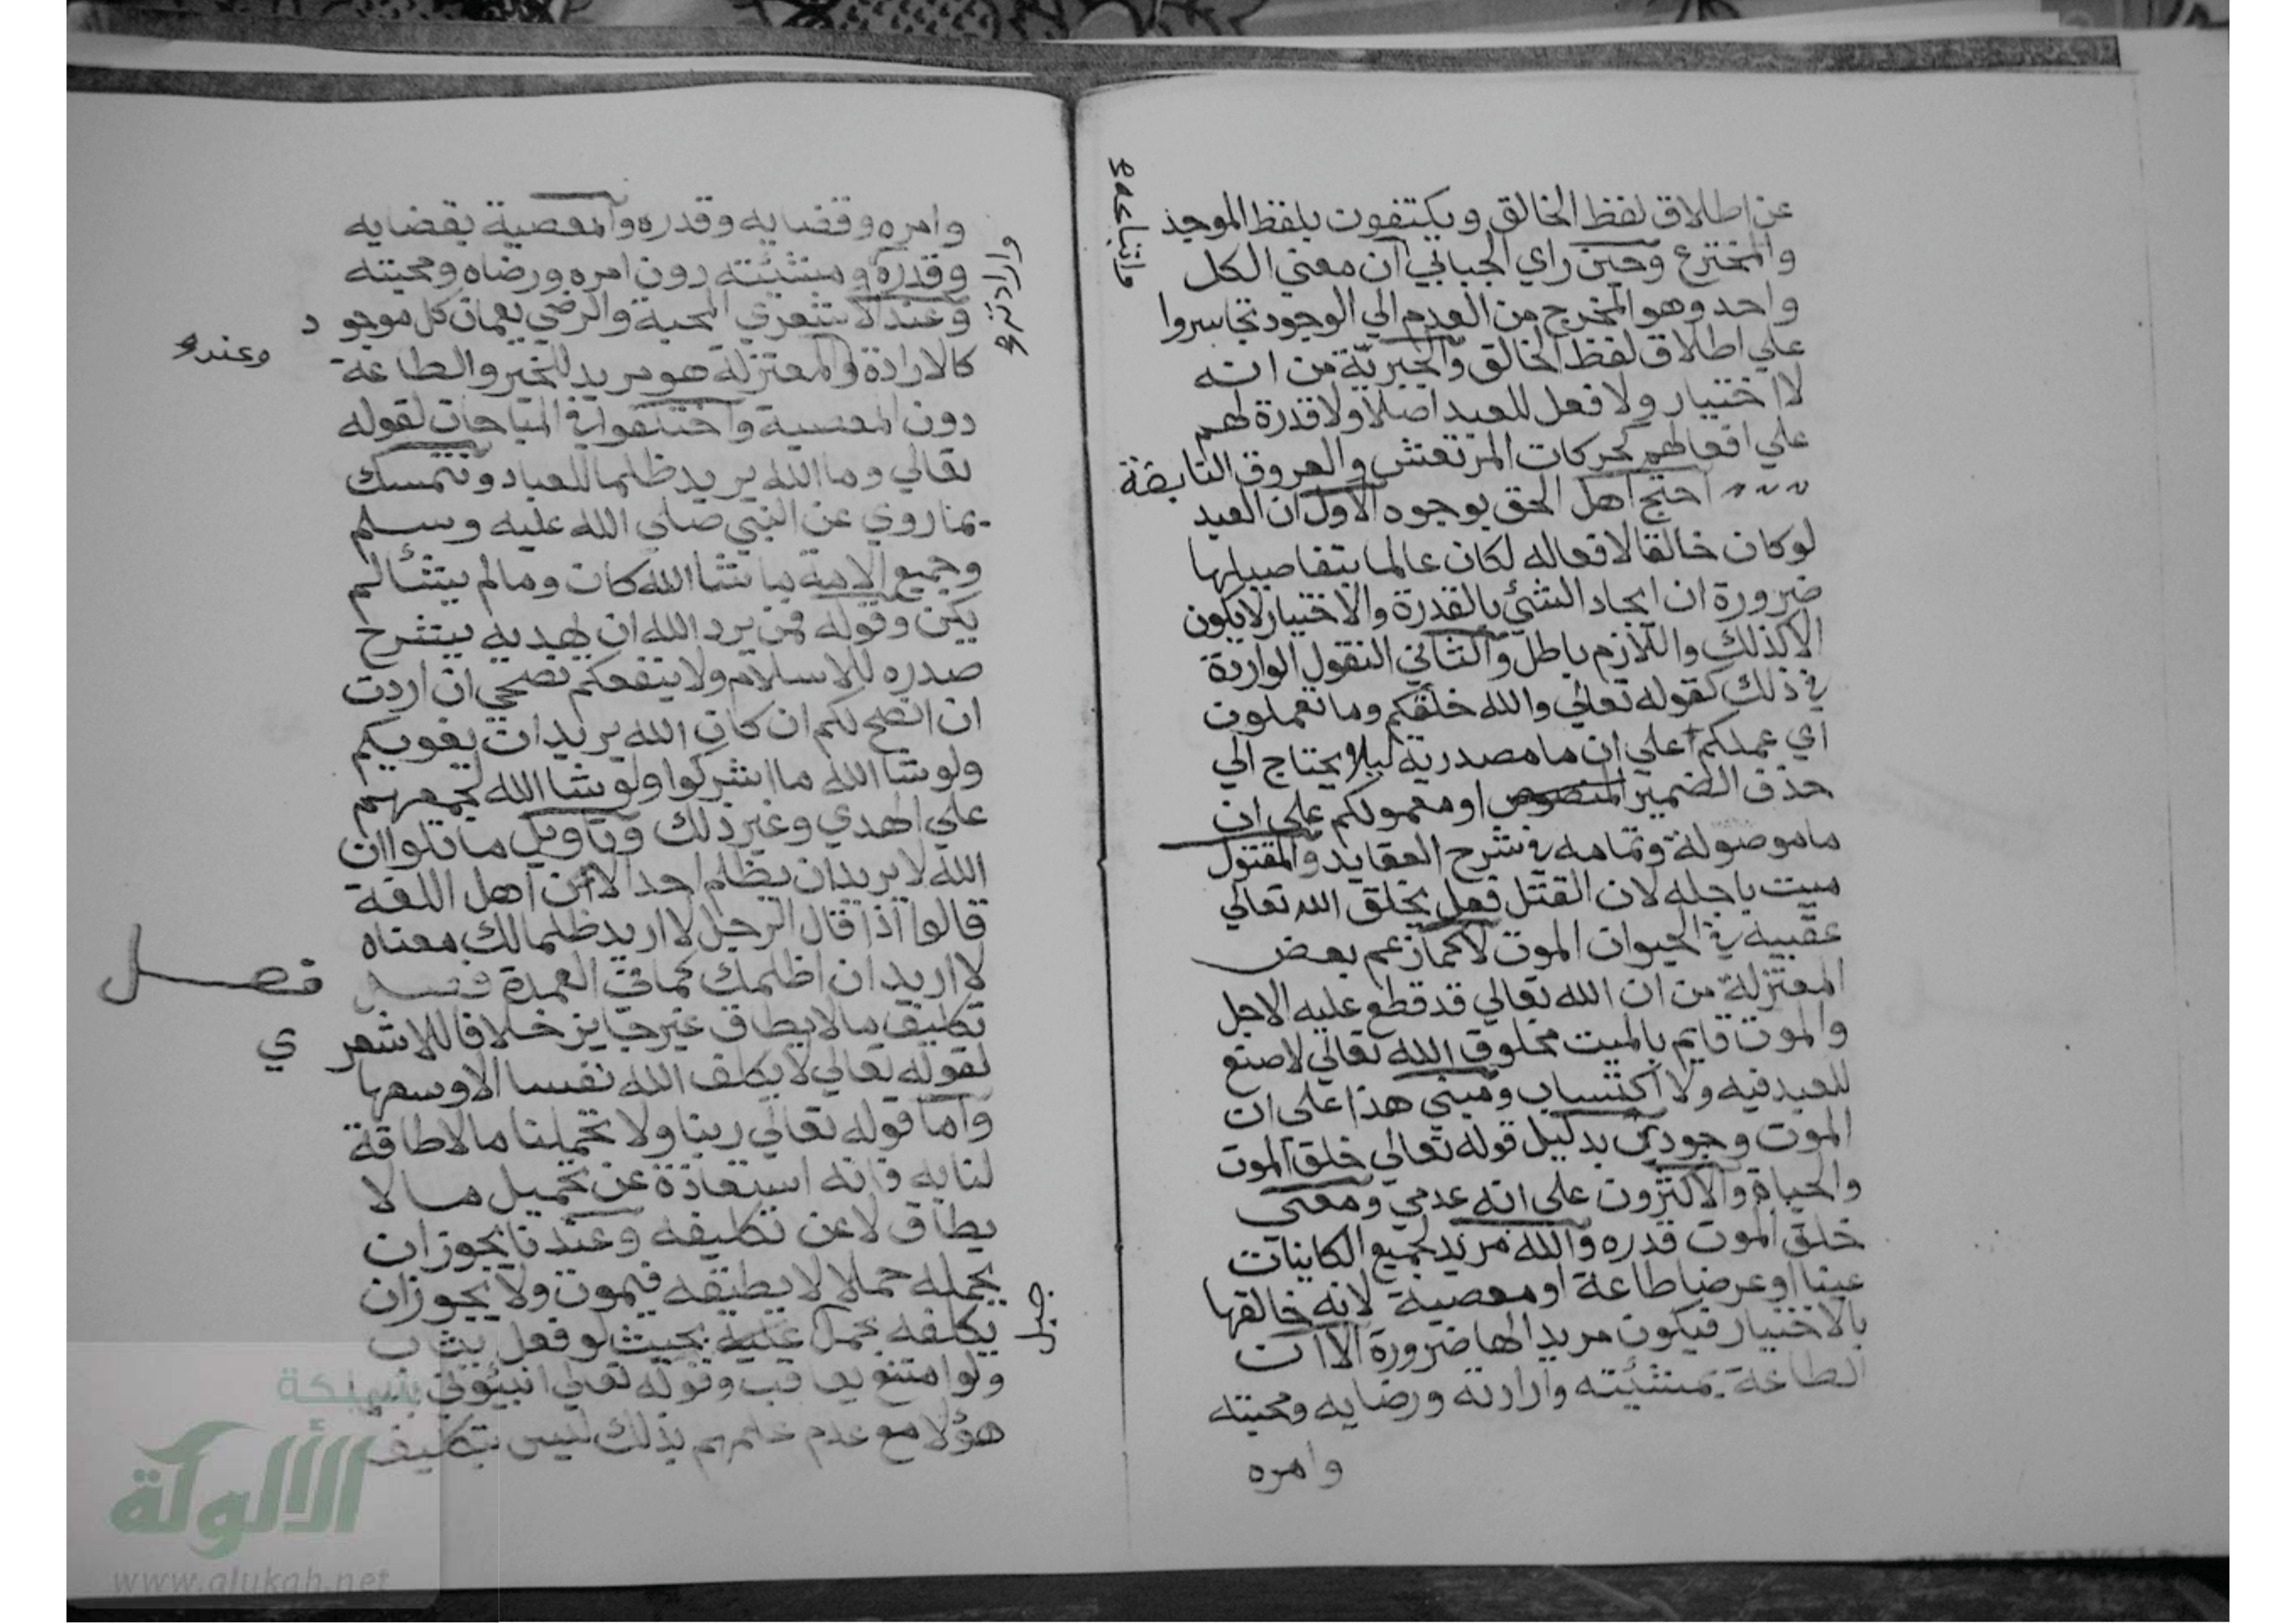 عن اطلاق لفظ الخالق ويكتفون بلفظ الموجد
والمخترع وحين راي الجبائي ان معني الكل
واحد وهو المخرج من العدم الي الوجود تجاسروا
علي اطلاق لفظ الخالق والجبرية من انه
لا اختيار ولا فعل للعبد اصلا ولا قدرة لهم
علي افعالهم كحركات المرتعش والعروق النابضة
احتج اهل الحق بوجوه الاول ان العبد
لو كان خالقا لافعاله لكان عالما بتفاصيلها
ضرورة ان ايجاد الشئ بالقدرة والاختيار لا يكون
الا كذلك واللازم باطل والثاني النقول الواردة
في ذلك كقوله تعالي والله خلقكم وما تعملون
اي عملكم علي ان ما مصدرية ليلا يحتاج الي
حذف الضمير او معمولكم علي ان
ما موصولة وتمامه في شرح العقايد والمقتول
ميت باجله لان القتل فعل يخلق الله تعالي
عقيبه في الحيوان الموت لا كما زعم بعض
المعتزلة من ان الله تعالي قد قطع عليه الاجل
والموت قايم بالميت مخلوق الله تعالي لا صنع
للعبد فيه ولا اكتساب ومبني هذا علي ان
الموت وجودي بدليل قوله تعالي خلق الموت
والحياة والاكثرون علي انه عدمي ومعني
خلق الموت قدره والله مريد لجميع الكاينات
عينا او عرضا طاعة او معصية لانه خالقها
بالاختيار فيكون مريدا لها ضرورة الا ان
الطاعة بمشئيته وارادته ورضايه ومحبته
وامره
واتباعه
وامره وقضايه وقدره والمعصية بقضايه
وقدره ومشئيته دون امره ورضاه ومحبته
وارادته
وعند الاشعري المحبة والرضي يعمان كل موجود
كالارادة والمعتزلة هو مريد للخير والطاعة
وعند
دون المعصية واختلفوا في المباحات لقوله
تعالي وما الله يريد ظلما للعباد ونتمسك
بما روي عن النبي صلي الله عليه وسلم
وجميع الامة ما شا الله كان وما لم يشأ لم
يكن وقوله فمن يرد الله ان يهديه يشرح
صدره للاسلام ولا ينفعكم نصحي ان اردت
ان انصح لكم ان كان الله يريد ان يغويكم
ولو شا الله ما اشركوا ولو شا الله لجمعهم
علي الهدي وغير ذلك وتاويل ما تلوا ان
الله لا يريد ان يظلم احدا لان اهل اللغة
قالوا اذا قال الرجل لا اريد ظلما لك معناه
لا اريد ان اظلمك كما في العمدة فصل
فصل
تكليف ما لا يطاق غير جايز خلافا للاشعري
لقوله تعالي لا يكلف الله نفسا الا وسعها
واما قوله تعالي ربنا ولا تحملنا ما لا طاقة
لنا به فانه استعاذة عن تحميل ما لا
يطاق لا عن تكليفه وعندنا يجوز ان
يحمله حملا لا يطيقه فيموت ولا يجوز ان
يكلفه بحمل بحيث لو فعل يثاب
ولو امتنع يعاقب وقوله تعالي انبئوني باسما
هؤلا مع عدم علمهم بذلك ليس بتكليف
شبكة
الألوكة
www.alukah.net